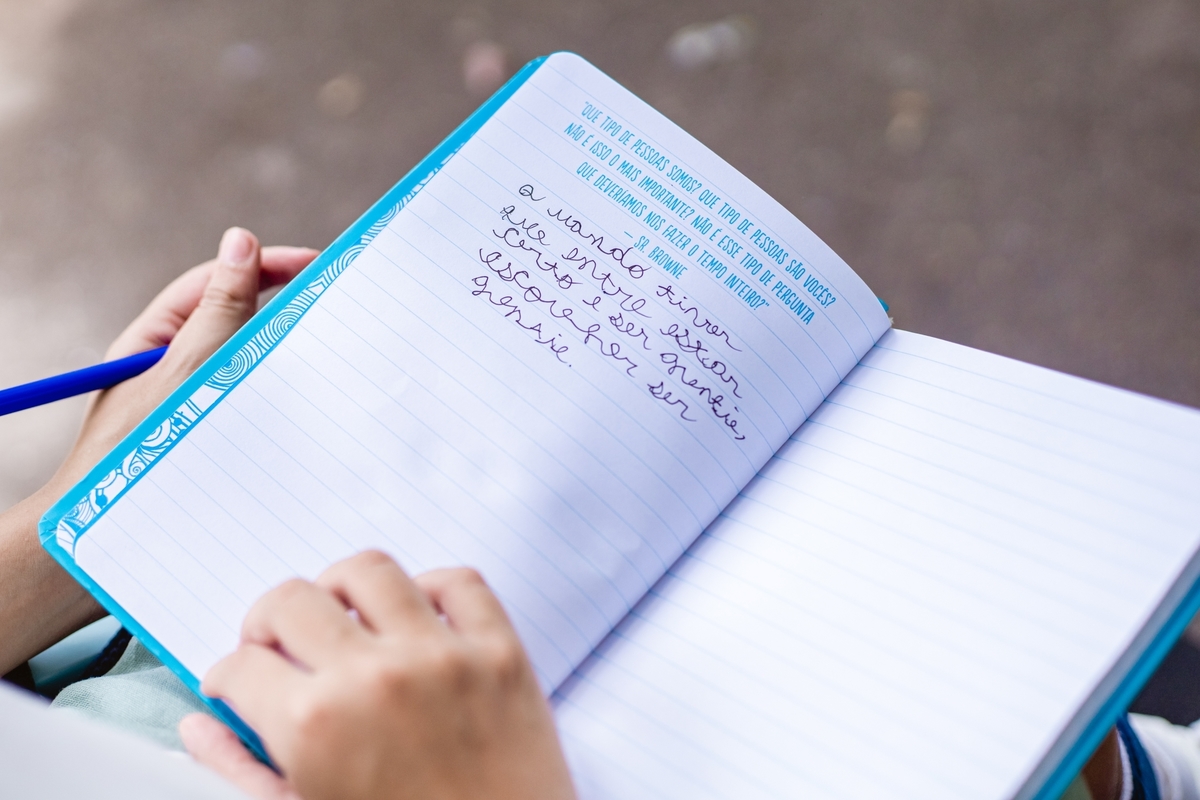 "QUE TIPO DE PESSOAS SOMOS? QUE TIPO DE PESSOAS SÃO VOCÊS?
NÃO É ISSO O MAIS IMPORTANTE? NÃO É ESSE TIPO DE PERGUNTA
QUE DEVERÍAMOS NOS FAZER O TEMPO INTEIRO?"
— SR. BROWNE
tinver
que entre estar
certo e ser gentil,
escolher ser
gensil.